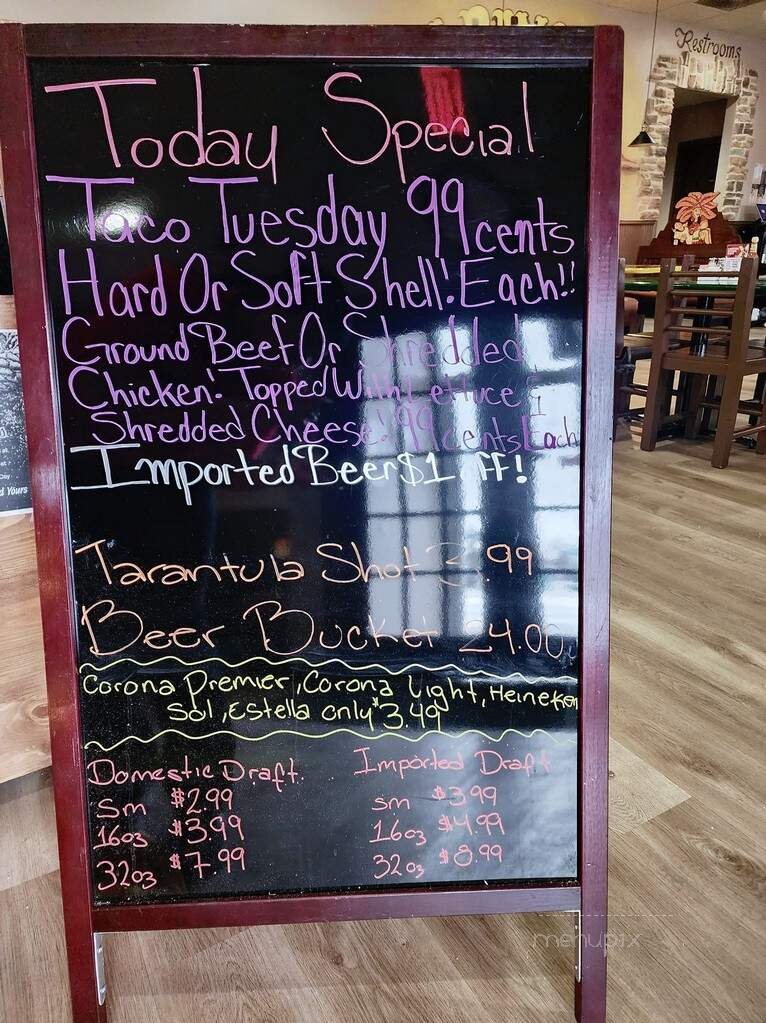 Restrooms
Today Special
Taco Tuesday 99 cents
Hard Or Soft Shell! Each!!
Ground Beef Or Shredded
Chicken! Topped With Lettuce &
Shredded Cheese! 99 cents Each
Imported Beer $1 off!
Tarantula Shot 3.99
Beer Bucket 24.00
Corona Premier, Corona Light, Heineken
Sol, Estella only $3.49
Domestic Draft. Imported Draft
sm $2.99 sm $3.99
16oz $3.99 16oz $4.99
32oz $7.99 32oz $8.99
d Yours
menupix